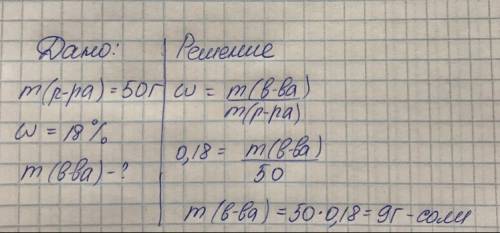 Дано:
m(р-ра) = 50г
ω = 18%
m(в-ва) - ?
Решение
ω = m(в-ва)/m(р-ра)
0,18 = m(в-ва)/50
m(в-ва) = 50·0,18 = 9г - соли